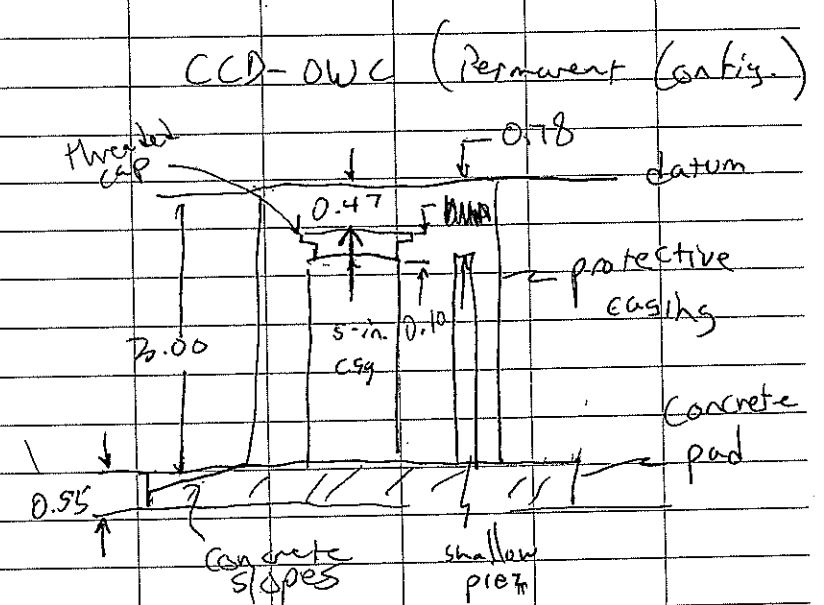 CCD-OWC (Permanent Config.)
threaded
cap
0.78
datum
0.47
protective
casing
3.00
5-in.
csg
0.10
Concrete
pad
0.55
Concrete
slopes
shallow
piez